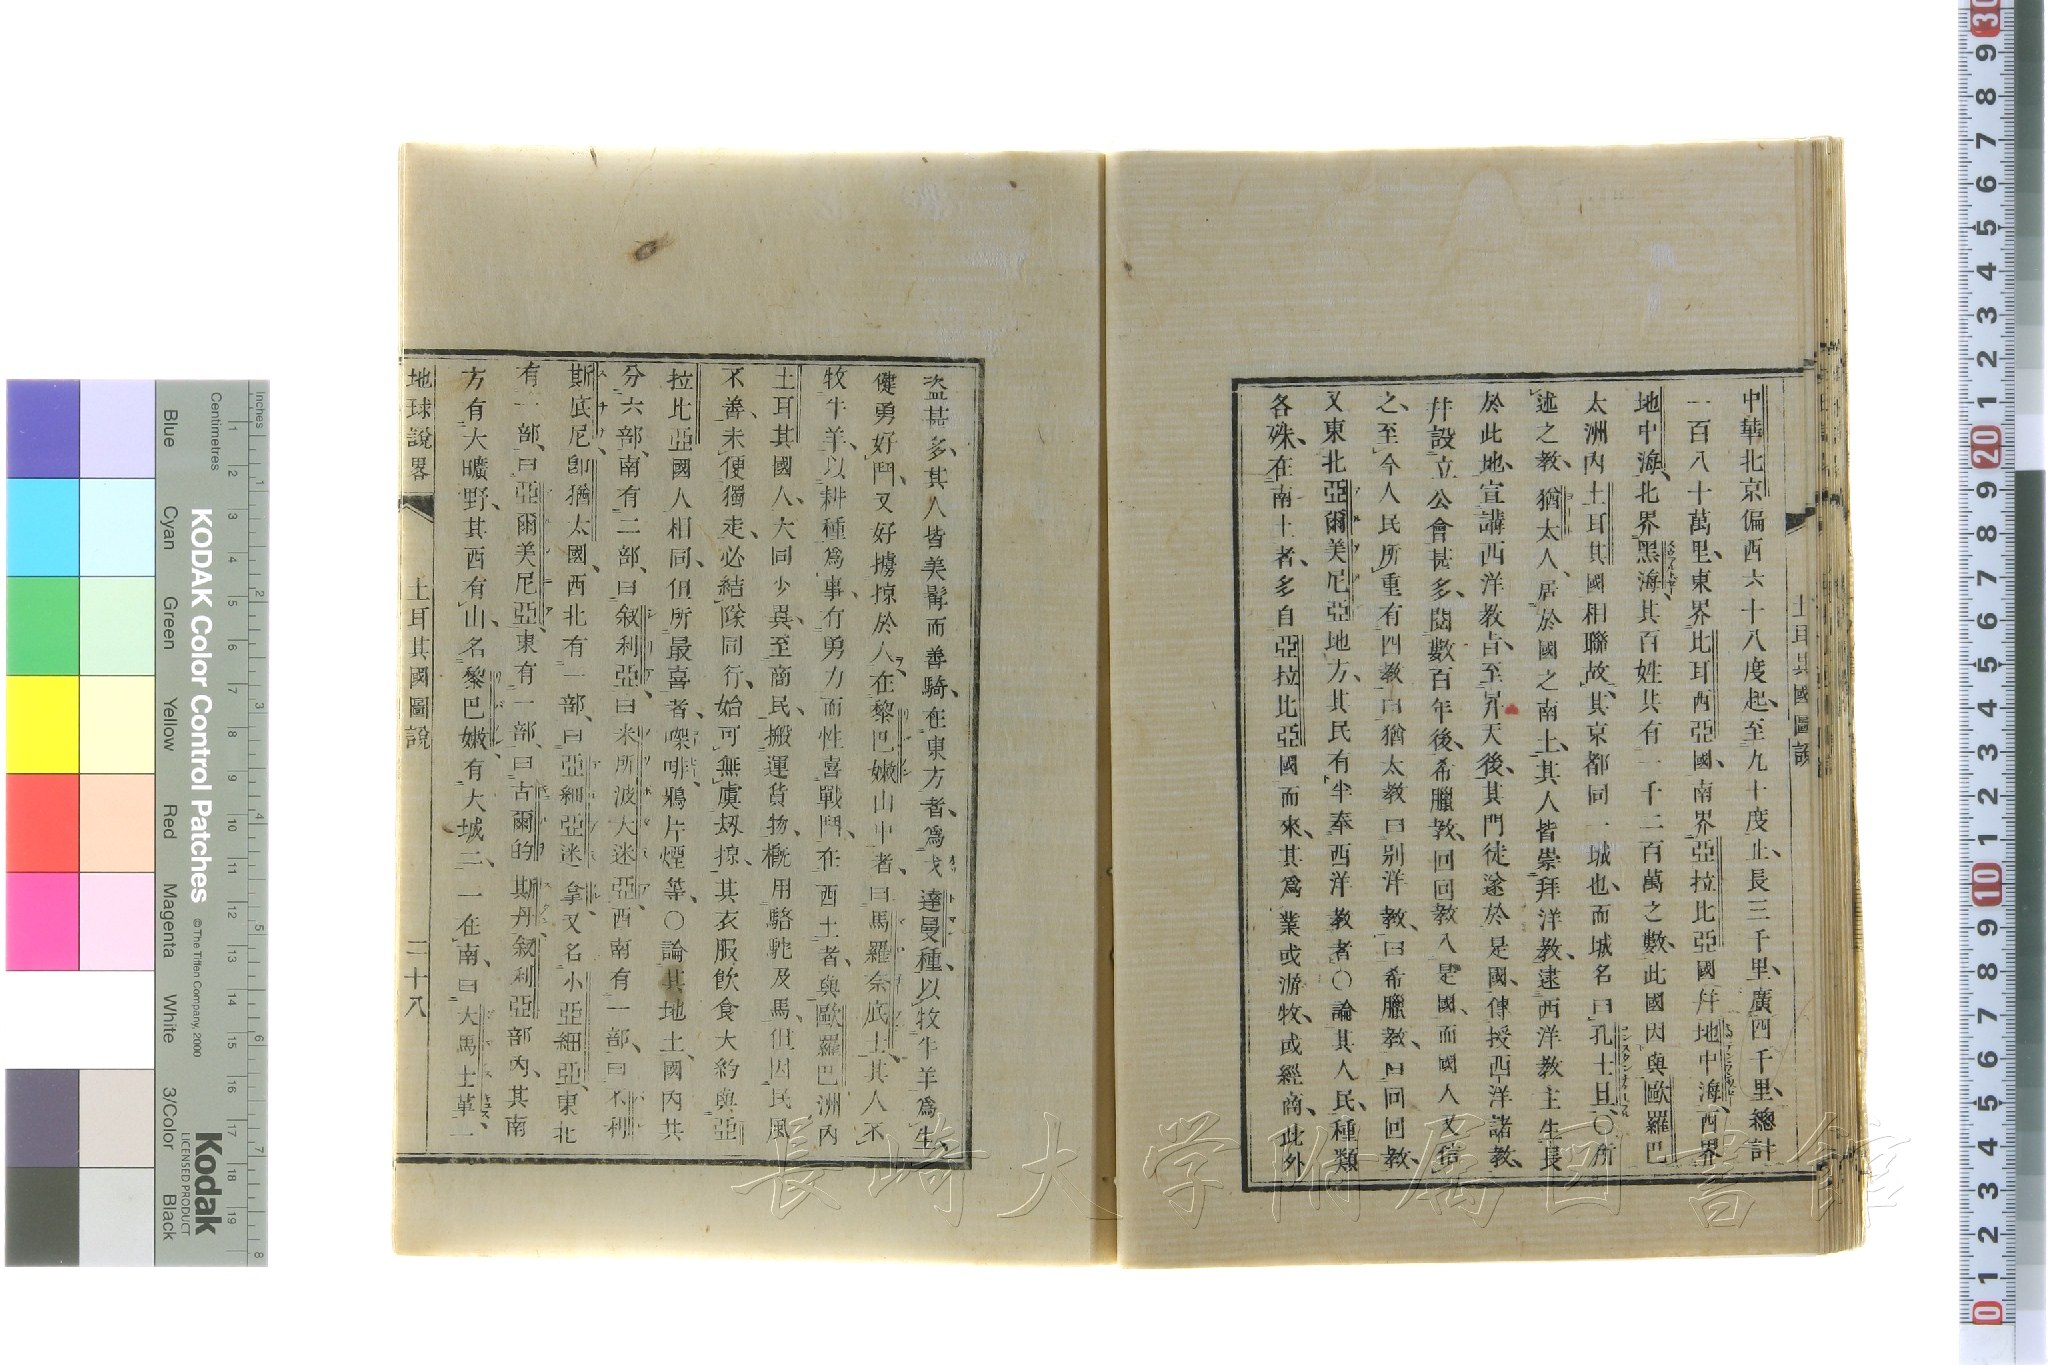 土耳其國圖說
中華北京偏西六十八度起、至九十度止、長三千里、廣四千里、總計
一百八十萬里、東界比耳西亞國、南界亞拉比亞國幷地中海、西界
地中海、北界黑海、其百姓共有一千二百萬之數、此國因與歐羅巴
太洲內土耳其國相聯故、其京都同一城也、而城名曰孔士旦、〇所
述之教、猶太人、居於國之南土、其人皆崇拜洋教、逮西洋教主生長
於此地、宣講西洋教㫖、至昇天後、其門徒遂於是國、傳授西洋諸教、
幷設立公會甚多、閱數百年後、希臘教、回回教入是國、而國人又信
之、至今人民所重有四教、曰猶太教曰别洋教、曰希臘教、曰回回教、
又東北亞爾美尼亞地方、其民有半奉西洋教者、〇論其人民、種類
各殊、在南土者、多自亞拉比亞國而來、其爲業或游牧、或經商、此外
盜甚多、其人皆美髯而善騎、在東方者、爲戈達曼種、以牧牛羊爲生、
健勇好鬥、又好擄掠於人、在黎巴嫩山中者、曰馬羅奈底士、其人不
牧牛羊、以耕種爲事、有勇力而性喜戰鬥、在西土者、與歐羅巴洲內
土耳其國人、大同少異、至商民、搬運貨物、概用駱駝及馬、但因民風
不善、未便獨走、必結隊同行、始可無虞刼掠、其衣服飲食大約與亞
拉比亞國人相同、但所最喜者、㗎啡鴉片煙等、〇論其地土、國內共
分六部、南有二部、曰叙利亞、曰米所波大迷亞、西南有一部、曰不利
斯底尼、卽猶太國、西北有一部、曰亞細亞迷拿、又名小亞細亞、東北
有一部、曰亞爾美尼亞、東有一部、曰古爾的斯丹、叙利亞部內、其南
方有大曠野、其西有山、名黎巴嫩、有大城二、一在南、曰大馬士革、一
地球說畧 土耳其國圖說 二十八
長崎大学附属図書館
KODAK Color Control Patches
© The Tiffen Company, 2000
Kodak
LICENSED PRODUCT
Inches
Centimetres
Blue Cyan Green Yellow Red Magenta White 3/Color Black